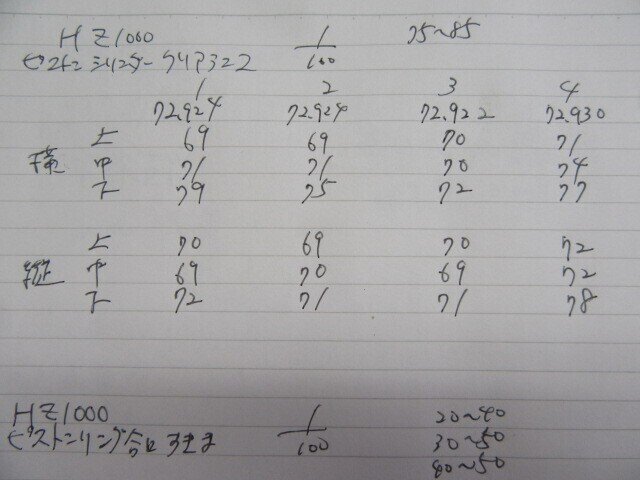 HZ1000 1/100 75~85
ピストンシリンダークリアランス
1 2 3 4
72.924 72.924 72.922 72.930
上 69 69 70 71
横 中 71 71 70 74
下 79 75 72 77
上 70 69 70 72
縦 中 69 70 69 72
下 72 71 71 78
HZ1000 1/100 20~40
ピストンリング合口すきま 30~50
80~50